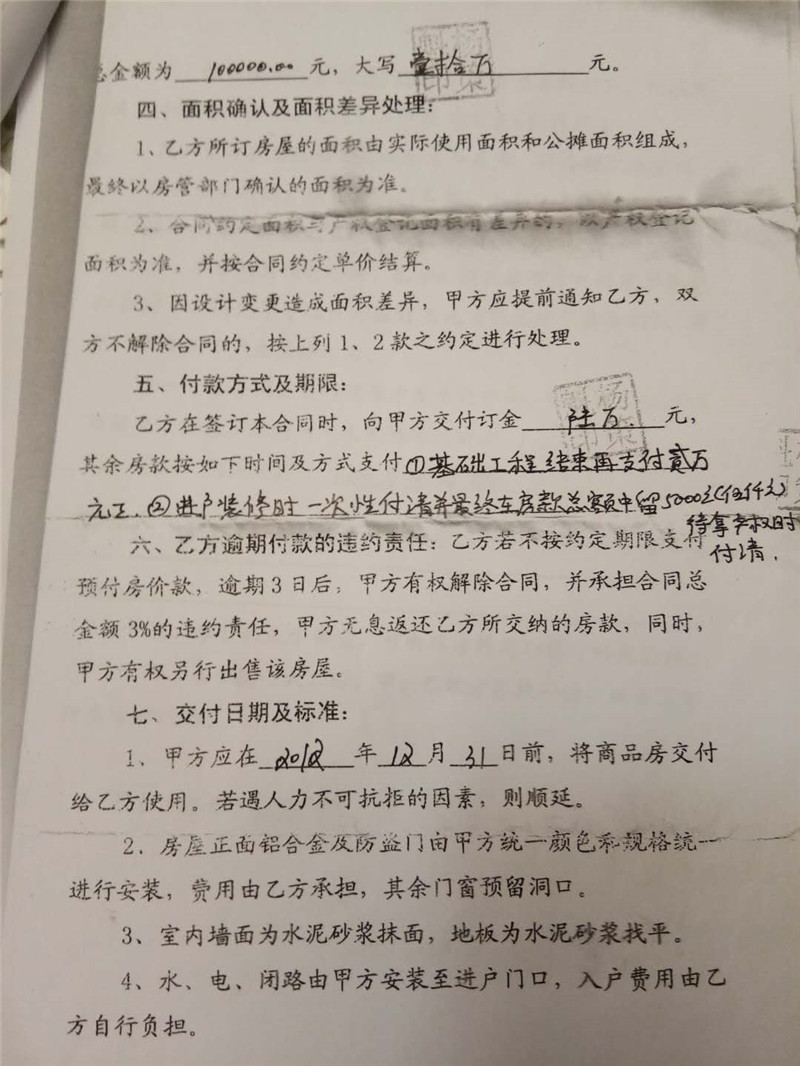 总金额为 100000.00 元，大写 壹拾万 元。
四、面积确认及面积差异处理：
1、乙方所订房屋的面积由实际使用面积和公摊面积组成，
最终以房管部门确认的面积为准。
2、合同约定面积与产权登记面积有差异的，以产权登记
面积为准，并按合同约定单价结算。
3、因设计变更造成面积差异，甲方应提前通知乙方，双
方不解除合同的，按上列1、2款之约定进行处理。
五、付款方式及期限：
乙方在签订本合同时，向甲方交付订金 陆万. 元，
其余房款按如下时间及方式支付①基础工程结束再支付贰万
元正.②进户装修时一次性付清并最终在房款总额中留5000元(伍仟元)
待拿产权时
付清.
六、乙方逾期付款的违约责任：乙方若不按约定期限支付
预付房价款，逾期3日后，甲方有权解除合同，并承担合同总
金额3%的违约责任，甲方无息返还乙方所交纳的房款，同时，
甲方有权另行出售该房屋。
七、交付日期及标准：
1、甲方应在 2012 年 12 月 31 日前，将商品房交付
给乙方使用。若遇人力不可抗拒的因素，则顺延。
2．房屋正面铝合金及防盗门由甲方统一颜色和规格统一
进行安装，费用由乙方承担，其余门窗预留洞口。
3、室内墙面为水泥砂浆抹面，地板为水泥砂浆找平。
4、水、电、闭路由甲方安装至进户门口，入户费用由乙
方自行负担。